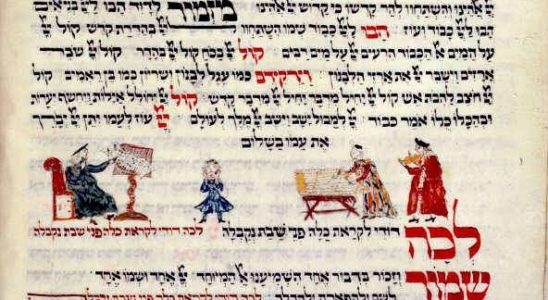 יי אלהינו והשתחוו להר קדשו כי קדוש יי אלהינו מזמור לדוד הבו ליי בני אלים
הבו ליי כבוד ועוז הבו ליי כבוד שמו השתחוו ליי בהדרת קדש קול יי
על המים אל הכבוד הרעים יי על מים רבים קול יי בכח קול יי בהדר קול יי שבר
ארזים וישבר יי את ארזי הלבנון וירקידם כמו עגל לבנון ושריון כמו בן ראמים קול
יי חצב להבת אש קול יי יחיל מדבר יחיל יי מדבר קדש קול יי יחולל אילות ויחשף יערות
ובהכלו כלו אמר כבוד יי למבול ישב וישב יי מלך לעולם יי עוז לעמו יתן יי יברך
את עמו בשלום
לכה דודי לקראת כלה פני שבת נקבלה לכה דודי לקראת כלה פני שבת נקבלה
שמור וזכור בדבור אחד השמיענו אל המיוחד יי אחד ושמו אחד
לשם ולתפארת ולתהלה לכה דודי לקראת כלה פני שבת נקבלה